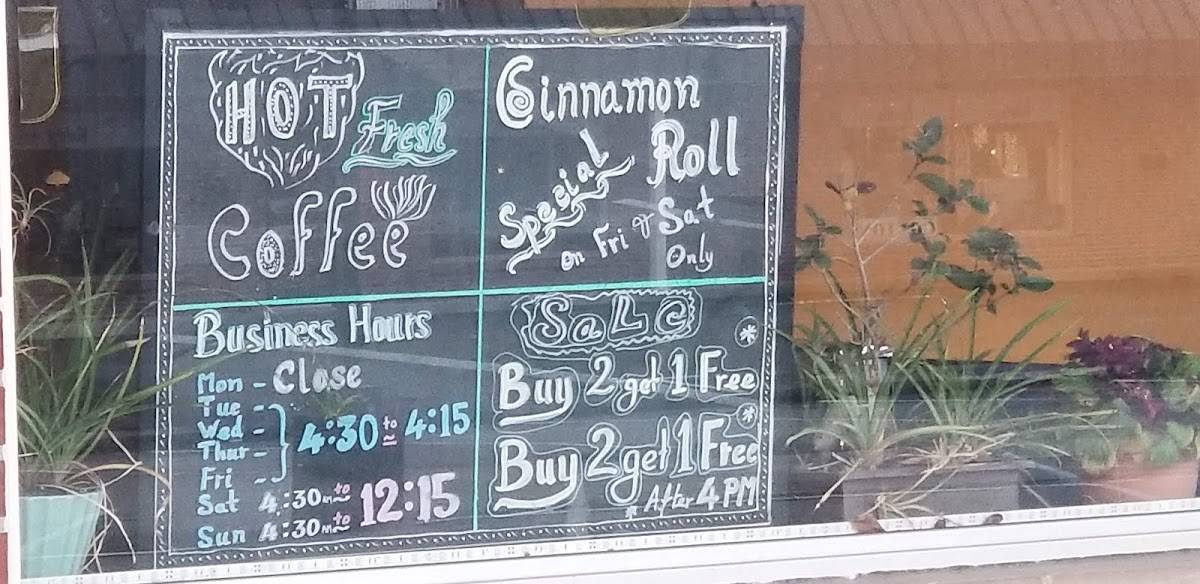 HOT
Fresh
Coffee
Cinnamon
Roll
Special
on Fri & Sat
Only
Business Hours
Mon - Close
Tue -
Wed - 4:30 to 4:15
Thur -
Fri -
Sat 4:30 to 12:15
Sun 4:30 to
SaLe
*
Buy 2 get 1 Free
*
Buy 2 get 1 Free
* After 4 PM